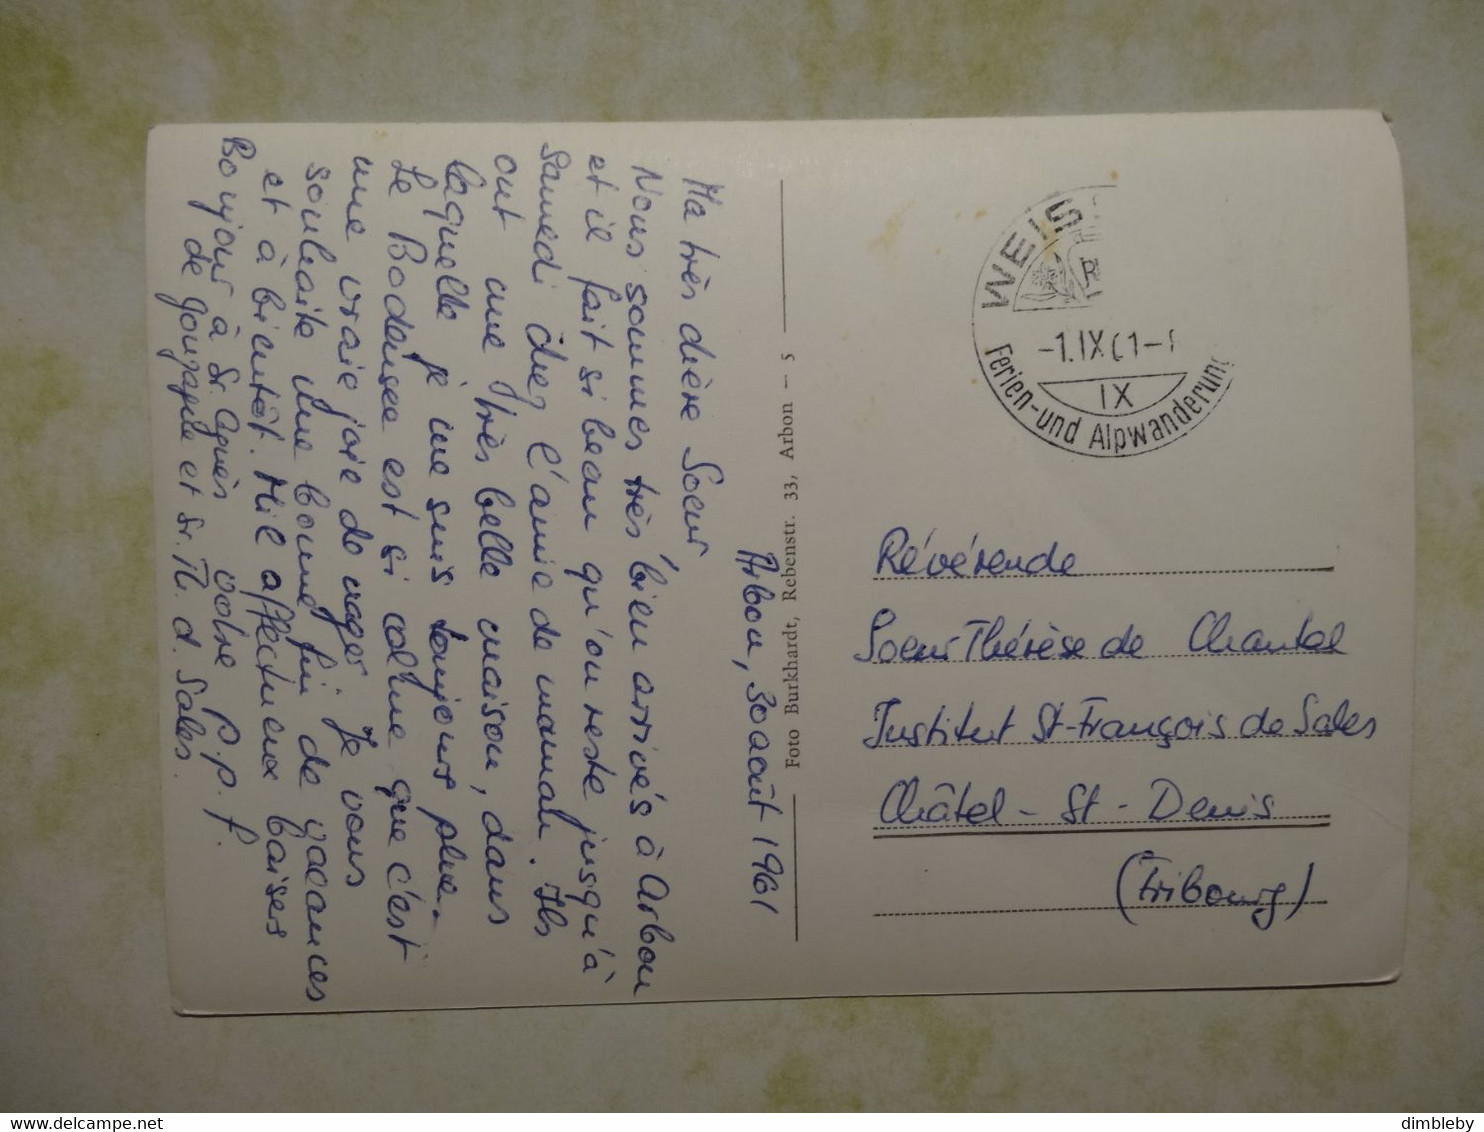 Arbon, 30 août 1961
Ma très chère Soeur,
Nous sommes très bien arrivés à Arbon
et il fait si beau qu'on reste jusqu'à
Samedi chez l'amie de maman. Ils
ont une très belle maison, dans
laquelle je me suis toujours plue.
Le Bodensee est si calme que c'est
une vraie joie de nager. Je vous
souhaite une bonne fin de vacances
et à bientôt. Mil affectueux baisers
Bonjour à Sr. Agnès votre p.p.f.
de Gonzague et Sr. Th. d. Sales.
Foto Burkhardt, Rebenstr. 33, Arbon — 5
WEIS
-1.IX 61-1
IX
Ferien-und Alpwanderung
Révérende
Soeur Thérèse de Chantal
Institut St-François de Sales
Châtel - St - Denis
(Fribourg)
dimbleby